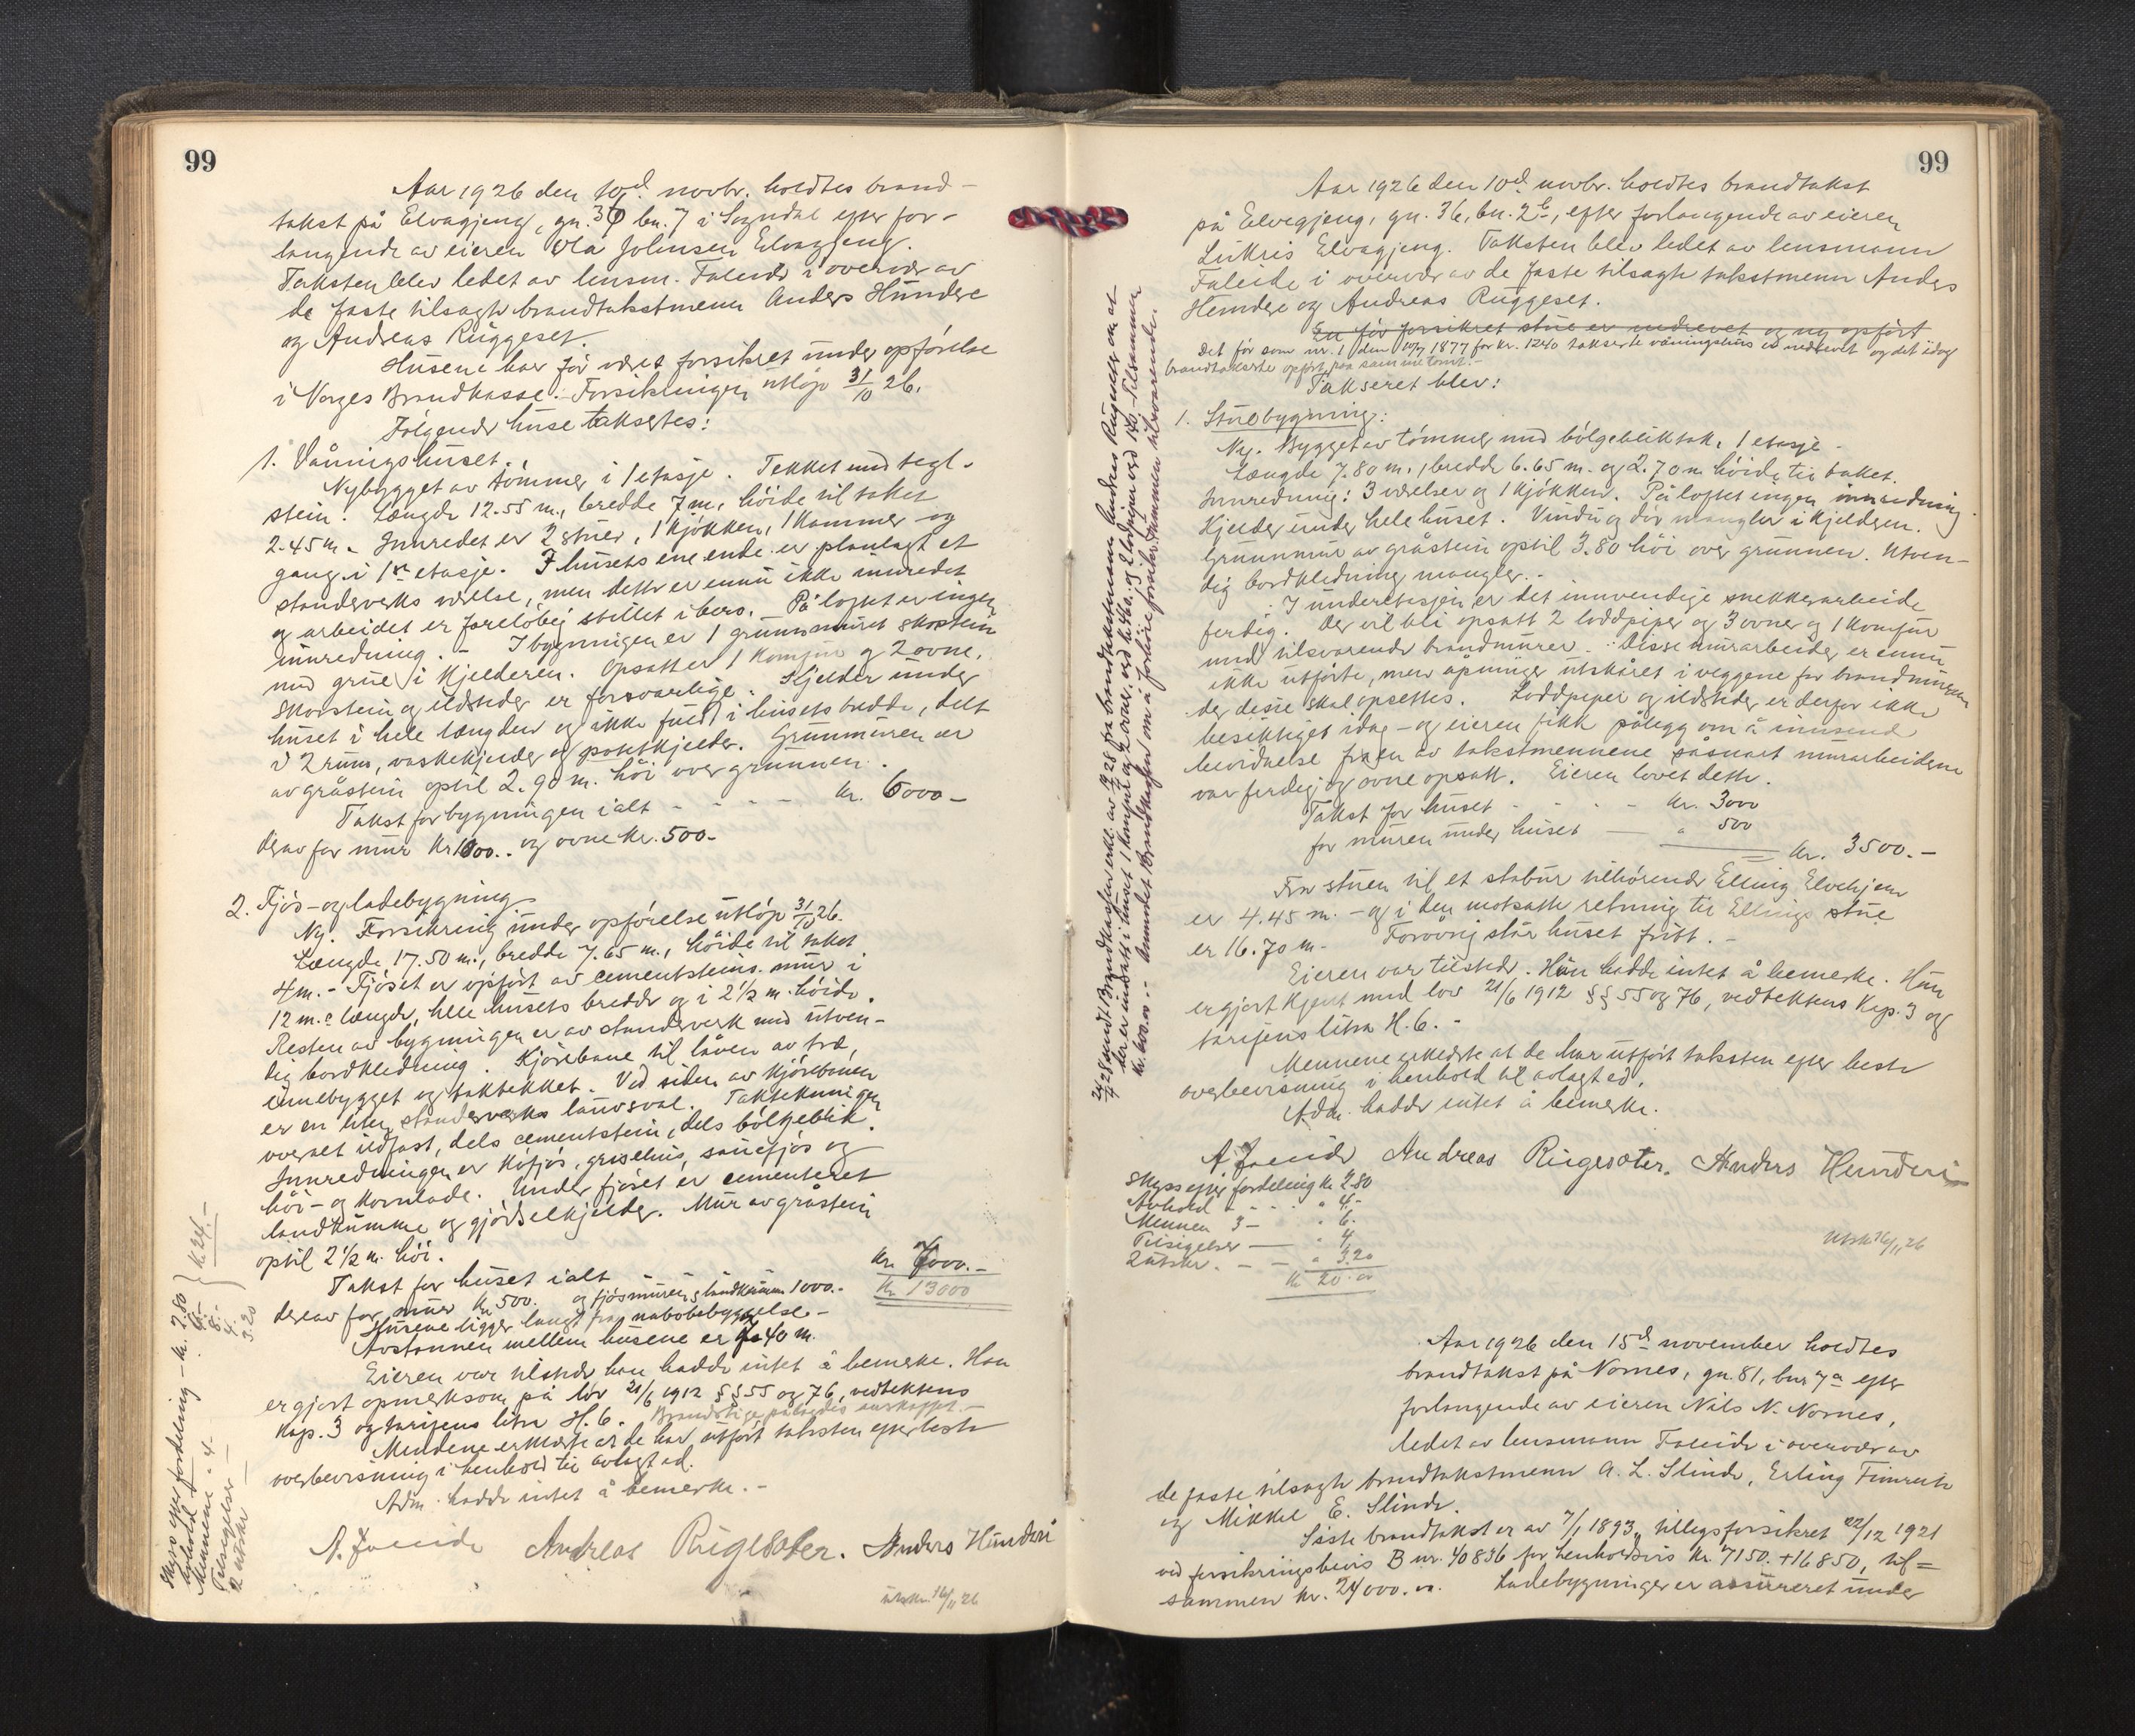 99
Aar 1926 den 10d. novbr. holdtes brand-
takst på Elvagjeng, gn. 36 bn. 7 i Sogndal efter for-
langende av eieren Ola Johnsen Elvagjeng.
Taksten blev ledet av lensm. Faleide i overvær av
de faste tilsagte brandtakstmenn Anders Hundere
og Andreas Ruggeset.
Husene har før været forsikret under opførelse
i Norges Brandkasse. Forsikringen utløp 31/10 26.
Følgende huse taksertes:
1. Våningshuset.
Nybygget av tømmer i 1 etasje. Tekket med tegl-
stein. Længde 12.55 m., bredde 7 m., høide til taket
2.45 m. Innredet er 2 stuer, 1 kjøkken, 1 kammer og
gang i 1ste etasje. I husets ene ende er planlagt et
standerverks værelse, men dette er ennu ikke innredet
og arbeidet er foreløbig stillet i bero. - På loftet er ingen
innredning. - I bygningen er 1 grunnmuret skorstein
med grue i kjelderen. Opsatt er 1 komfur og 2 ovne.
Skorstein og ildsteder er forsvarlige. Kjelder under
huset i hele længden og ikke fuld i husets bredde, delt
i 2 rum, vaskekjelder og potetkjelder. Grunnmuren er
av gråstein optil 2.90 m. høi over grunnen.
Takst for bygningen ialt - - - - kr. 6000-
derav for mur kr 1000.. og ovne kr. 500-
2. Fjøs- og ladebygning
Ny. Forsikring under opførelse utløp 31/10 26.
Længde 17.50 m., bredde 7.65 m., høide til taket
4 m. - Fjøset er opført av cementsteins mur i
12 m.s længde, hele husets bredde og i 2½ m. høide.
Resten av bygningen er av standerverk med utven-
dig bordkledning. Kjørebane til låven av træ,
innebygget og taktekket. Ved siden av kjørebanen
er en liten standerverks lauvsval. Taktekningen
overalt ildfast, dels cementstein, dels bølgeblik.
Innredningen er kofjøs, grisehus, sauefjøs og
høi- og kornlade. Under fjøset er cementeret
landkumme og gjødselkjelder. Mur av gråstein
optil 2½ m. høi.
Takst for huset ialt - - - kr. 7000.-
kr. 13000
derav for mur kr 500. og fjøsmuren og landkummen 1000.-
Husene ligger langt fra nabobebyggelse.-
Avstannen mellem husene er 40 m.
Eieren var tilstede han hadde intet å bemerke. Han
er gjort opmerksom på lov 21/6 1912 §§ 55 og 76, vedtektens
Kap. 3 og tarifens litra H. 6. Brandstige pålagdes anskaffet.-
Mennene erklærte at de har utført taksten efter beste
overbevisning i henhold til avlagt ed.
Adm. hadde intet å bemerke. -
A. Faleide Andreas Rugesæter. Anders Hunderi
utskr. 16/11 26
Skyss efter fordeling - kr. 2.80
Avhold - 6.-
Mennene - 4- 8.-
Tilsigelser - 4.
2 utskr - 3.20
kr. 24.-
99
Aar 1926 den 10d. novbr. holdtes brandtakst
på Elvegjeng, gn. 36, bn. 2b, efter forlangende av eieren
Lukris Elvagjeng. Taksten blev ledet av lensmann
Faleide i overvær av de faste tilsagte takstmenn Anders
Hundere og Andreas Ruggeset.
En før forsikret stue er nedrevet og ny opført
Det før som nr. 1 den 10/7 1877 for kr. 1240 takserte våningshus er nedrevet og det idag
brandtakserte opført paa samme tomt.-
Takseret blev:
1. Stuebygning:
Ny. Bygget av tømmer med bølgebliktak, 1 etasje -
Længde 7.80 m., bredde 6.65 m. og 2.70 m høide til taket.
Innredning: 3 værelser og 1 kjøkken. På loftet ingen innredning.
Kjelder under hele huset. Vindu og dør mangler i kjelderen.
Grunnmur av gråstein optil 3.80 høi over grunnen. Utven-
dig bordkledning mangler..
I underetasjen er det innvendige snekkerarbeide
ferdig. Der vil bli opsatt 2 loddpiper og 3 ovner og 1 komfur
med tilsvarende brandmurer. Disse murarbeider er ennu
ikke utførte, men åpninger utskåret i veggene for brandmurene
der disse skal opsettes. Loddpiper og ildsteder er derfor ikke
besiktiget idag - og eieren fikk pålegg om å innsende
bevidnelse fra en av takstmennene såsnart murarbeiderne
var ferdig og ovne opsatt. Eieren lovet dette.
Takst for huset - - - kr. 3000
for muren under huset — " 500
kr. 3500.-
Fra stuen til et stabur tilhørende Elling Elvehjem
er 4.45 m. - og i den motsatte retning til Ellings stue
er 16.70 m- Forøvrig står huset fritt. -
Eieren var tilstede. Hun hadde intet å bemerke. Hun
er gjort kjent med lov 21/6 1912 §§ 55 og 76, vedtektens Kap. 3 og
tarifens litra H. 6. -
Mennene erklærte at de har utført taksten efter beste
overbevisning i henhold til avlagt ed.
Adm. hadde intet å bemerke.
A. Faleide Andreas Rugesæter. Anders Hunderi
Skyss efter fordeling kr 2.80
Avhold - - - " 4.-
Mennene 3 - " 6.
Tilsigelser — " 4.
2 utskr. - - " 3.20
kr 20.00
utskr 16/11 26
24/4 28 sendt Brandkassen erkl. av 19/4 28 fra brandtakstmann Andreas Rugeset om at
der er innsatt i huset 1 komfur og 2 ovner, og 2 lodpiper
kr. 600.00.- Anmodet Brandkassen om å forhøie forsikr. summen tilsvarende.
Aar 1926 den 15d november holdtes
brandtakst på Nornes, gn. 81, bnr 7a efter
forlangende av eieren Nils N. Nornes,
ledet av lensmann Faleide i overvær av
de faste tilsagte brandtakstmenn A. L. Slinde, Erling Fimreite
og Mikkel E. Slinde.
Siste brandtakst er av 7/1 1893, tillegsforsikret 22/12 1921
ved forsikringsbevis B nr. 40836 for henholdsvis kr. 7150. + 16850, til-
sammen kr. 24000.00. Ladebygningen er assureret under